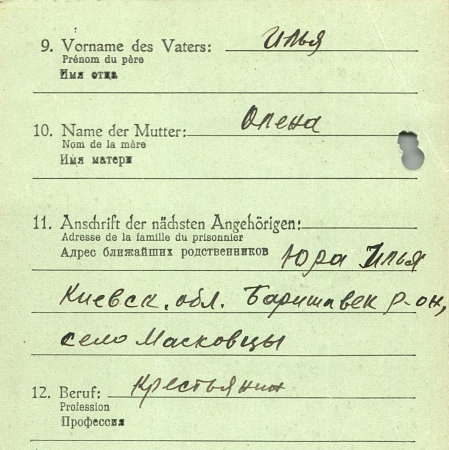 9. Vorname des Vaters: Илья
Prénom du père
Имя отца
10. Name der Mutter: Олена
Nom de la mère
Имя матери
11. Anschrift der nächsten Angehörigen:
Adresse de la famille du prisonnier
Адрес ближайших родственников Юра Илья
Киевск. обл. Баришавск р-он,
село Масковцы
12. Beruf: Крестьянин
Profession
Профессия